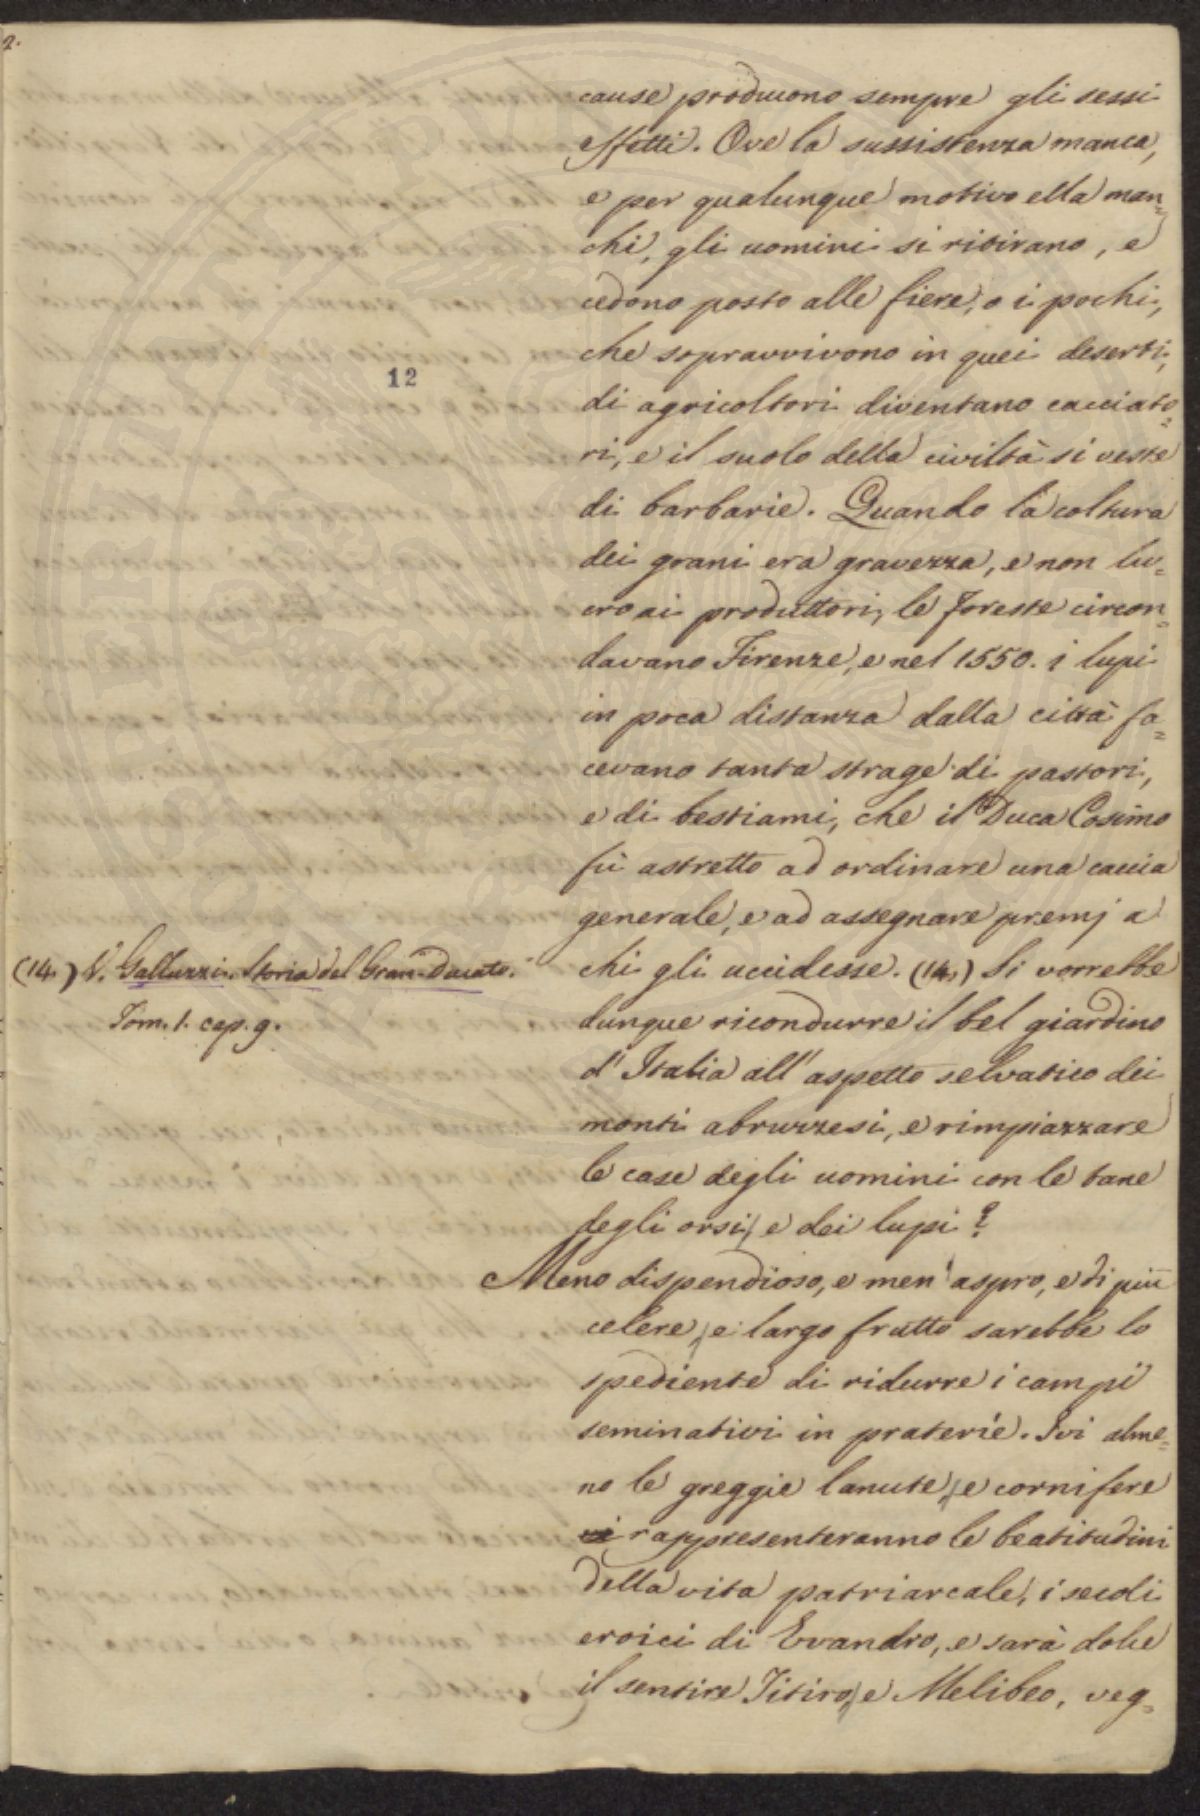 2.
cause producono sempre gli sessi
effetti. Ove la sussistenza manca,
e per qualunque motivo ella man=
chi, gli uomini si ritirano, e
cedono posto alle fiere, o i pochi,
che sopravvivono in quei deserti,
12
di agricoltori diventano cacciato=
ri, e il suolo della civiltà si veste
di barbarie. Quando la coltura
dei grani era gravezza, e non lu=
cro ai produttori, le foreste circon=
davano Firenze, e nel 1550. i lupi
in poca distanza dalla città fa=
cevano tanta strage di pastori,
e di bestiami, che il Duca Cosimo
fù astretto ad ordinare una caccia
generale, e ad assegnare premj a
chi gli uccidesse. (14.) Si vorrebbe
(14.) V. Galluzzi. Storia del Gran-Ducato.
Tom. 1. cap. 9.
dunque ricondurre il bel giardino
d'Italia all'aspetto selvatico dei
monti abruzzesi, e rimpiazzare
le case degli uomini con le tane
degli orsi, e dei lupi?
Meno dispendioso, e men' aspro, e di più
celere, e largo frutto sarebbe lo
spediente di ridurre i campi
seminativi in praterie. Ivi alme=
no le greggie lanute, e cornifere
vi rappresenteranno le beatitudini
della vita patriarcale, i secoli
eroici di Evandro, e sarà dolce
il sentire Titiro, e Melibeo, veg=